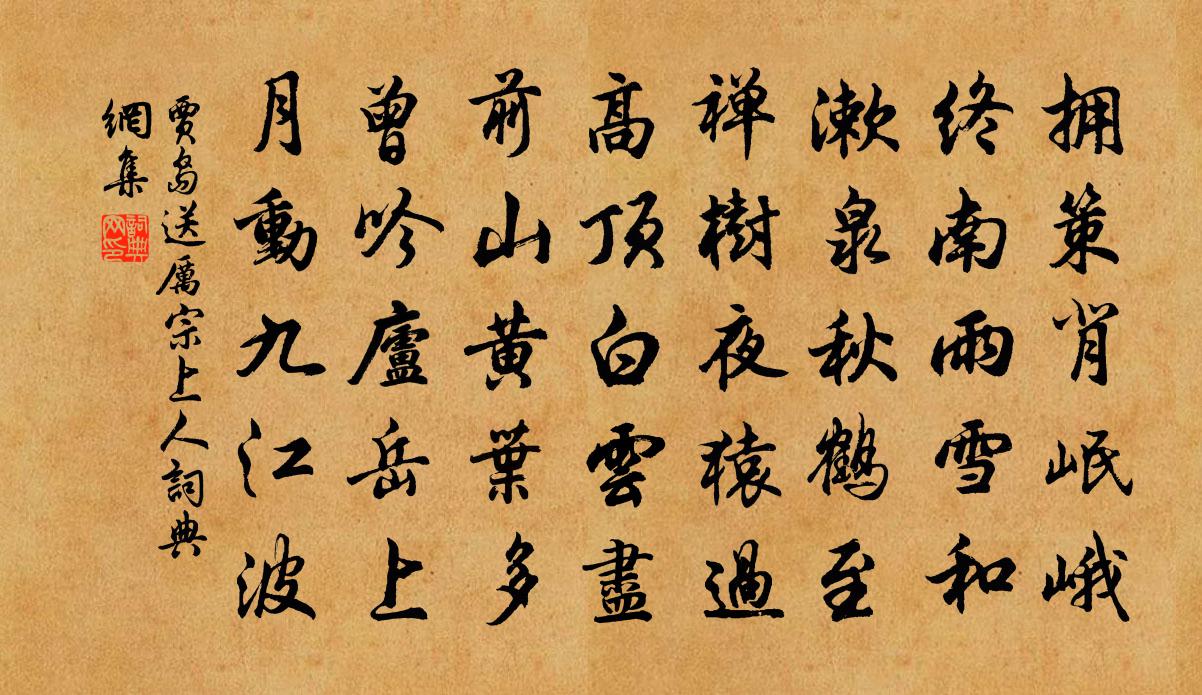 拥策背岷峨
终南雨雪和
漱泉秋鶴至
禅樹夜猿過
高顶白雲盡
前山黄葉多
曾吟廬岳上
月動九江波
賈島送厲宗上人詞典
網集
詞典
网印